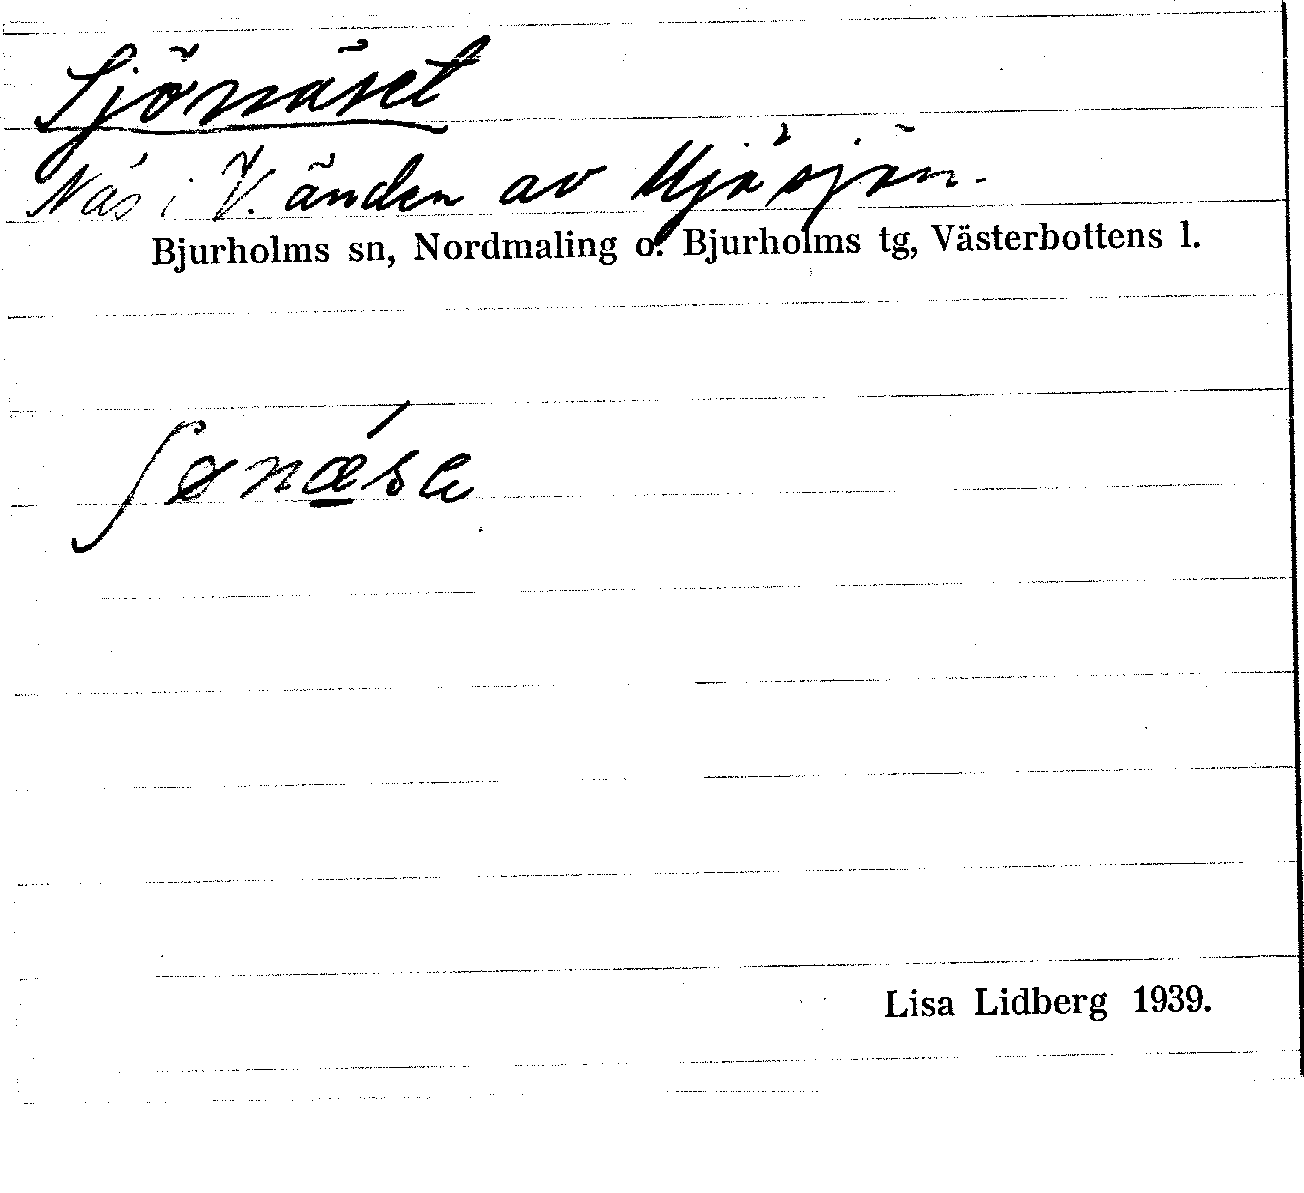 Sjönäset
Näs i V. änden av Mjösjön.
Bjurholms sn, Nordmaling o. Bjurholms tg, Västerbottens l.
ʃønǽse
Lisa Lidberg 1939.